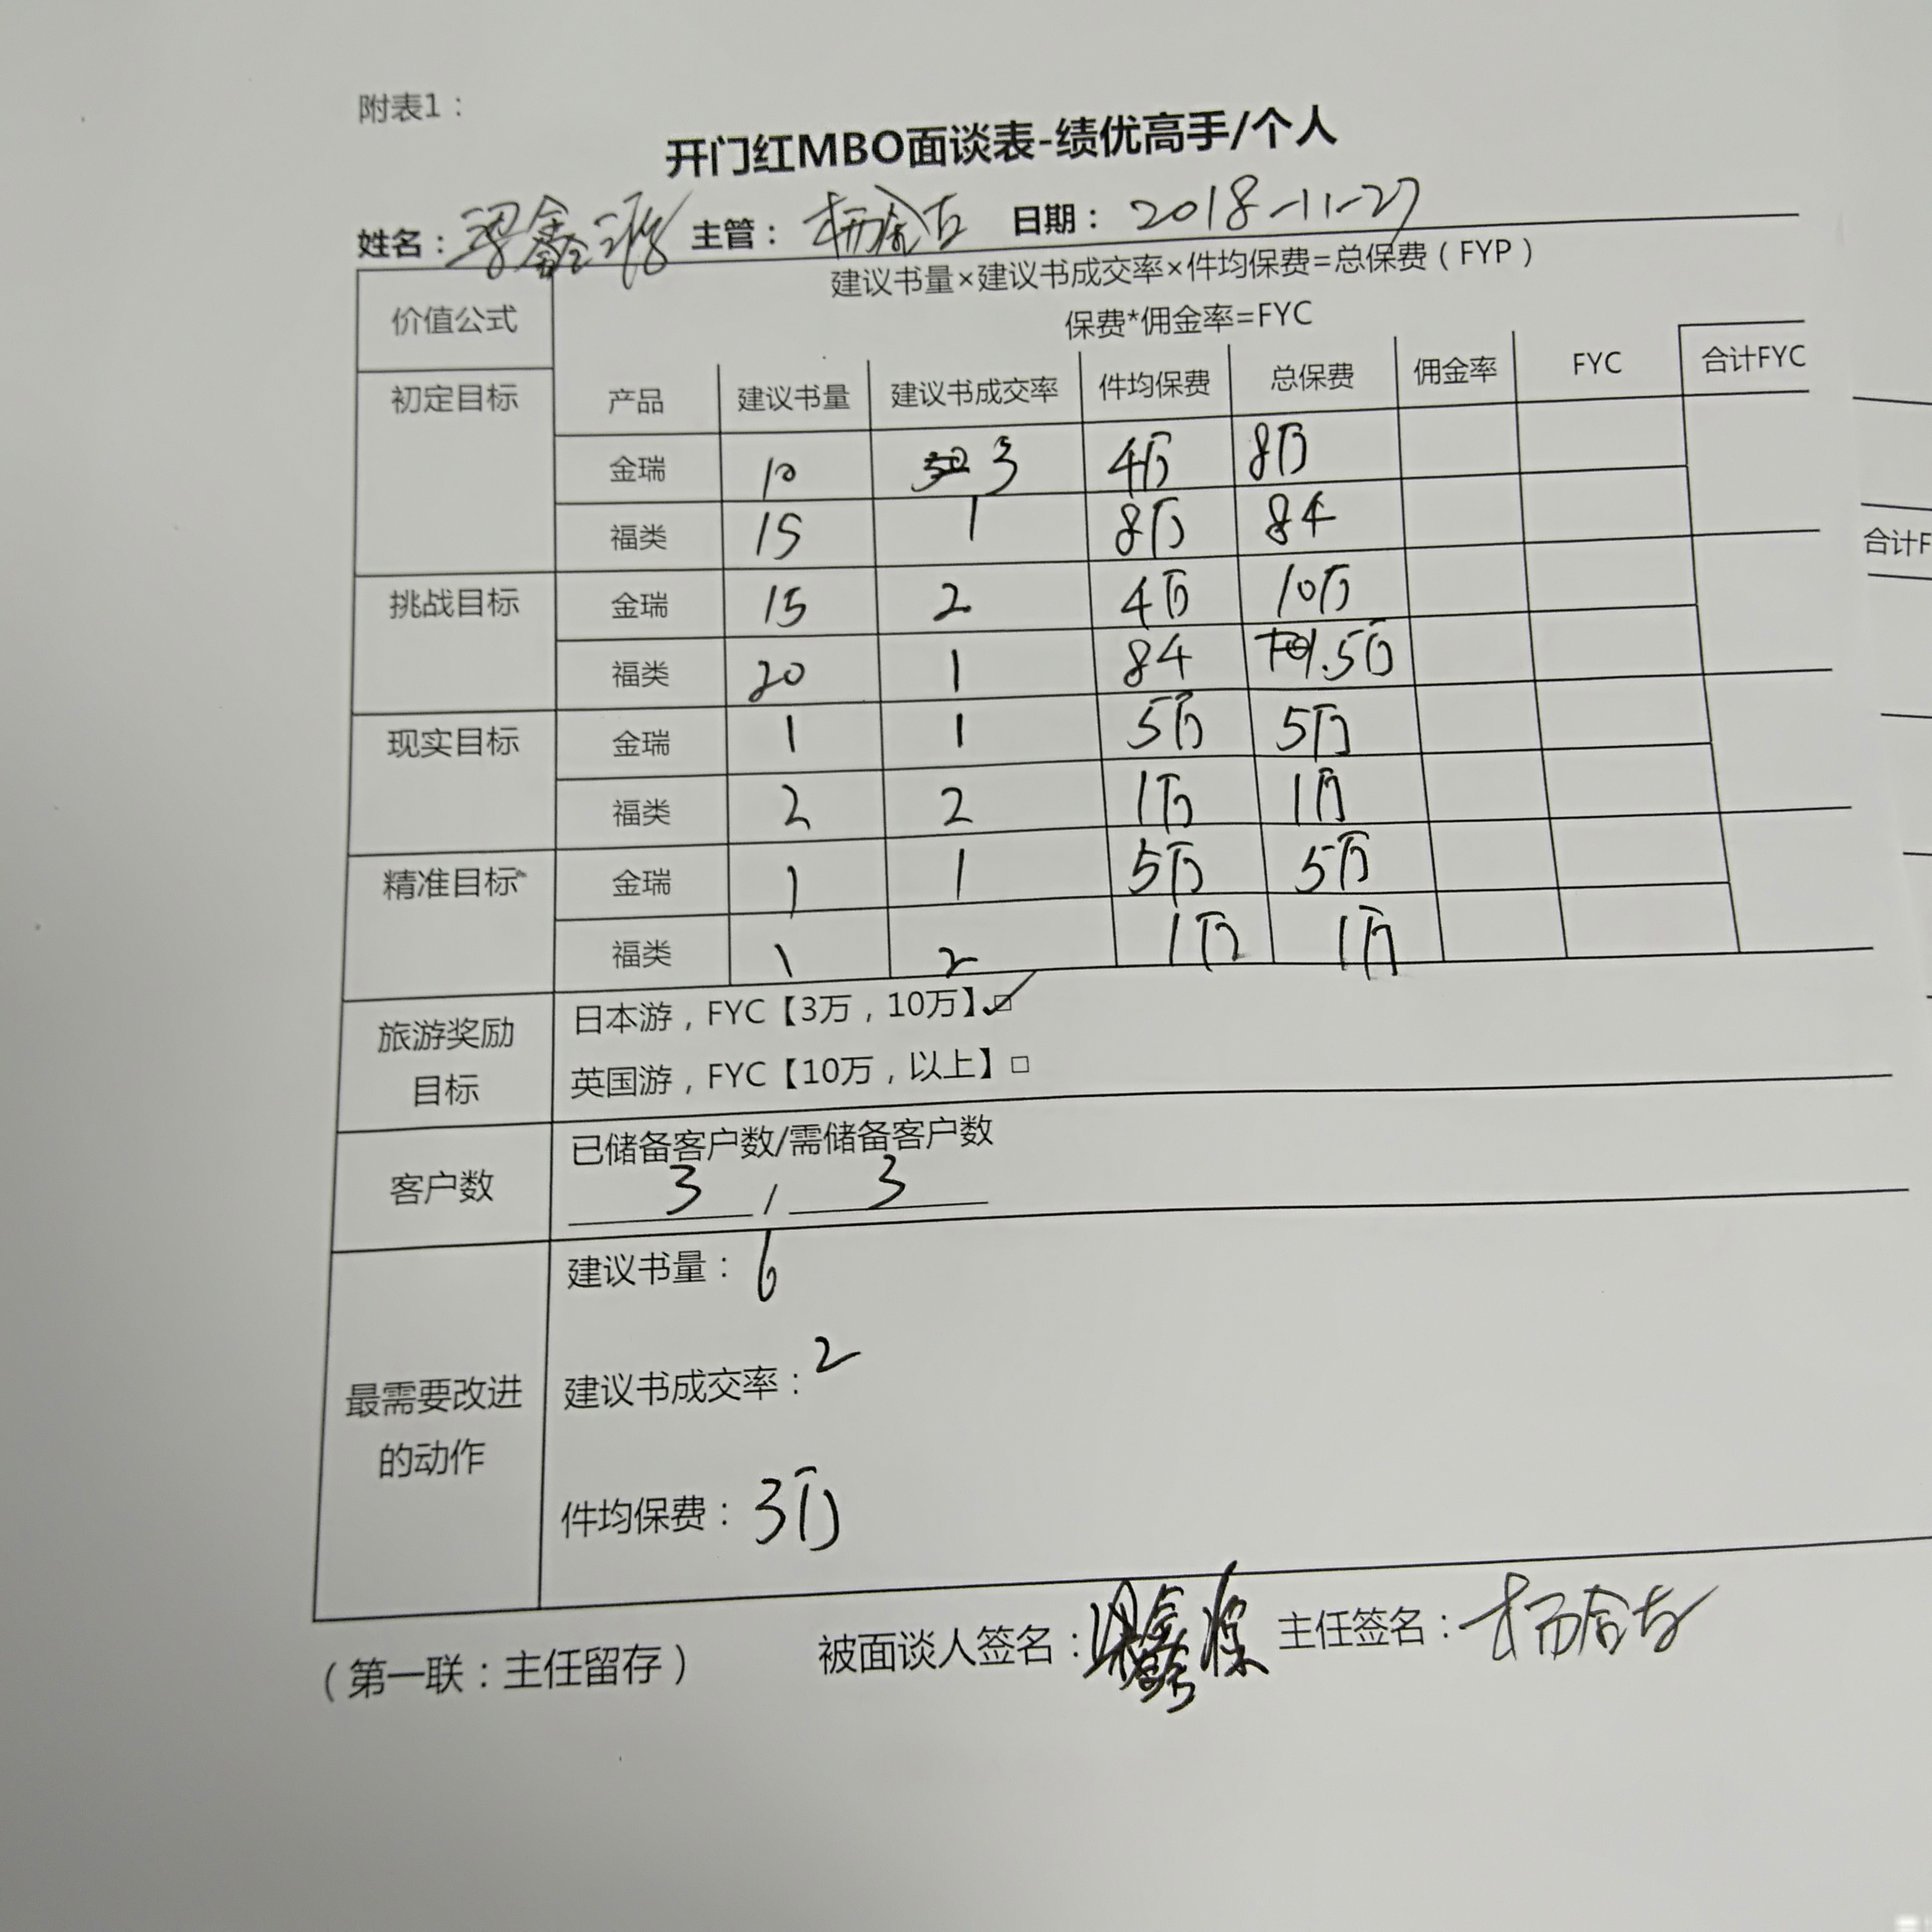 附表1：
开门红MBO面谈表-绩优高手/个人
姓名：梁鑫 主管： 日期：2018-11-27
价值公式 建议书量×建议书成交率×件均保费=总保费（FYP）
保费*佣金率=FYC
初定目标 产品 建议书量 建议书成交率 件均保费 总保费 佣金率 FYC 合计FYC
金瑞 10 3 4万 8万
福类 15 1 8万 84
挑战目标 金瑞 15 2 4万 10万
福类 20 1 84 1.5万
现实目标 金瑞 1 1 5万 5万
福类 2 2 1万 1万
精准目标 金瑞 1 1 5万 5万
福类 1 2 1万 1万
旅游奖励目标 日本游，FYC【3万，10万】☑
英国游，FYC【10万，以上】□
客户数 已储备客户数/需储备客户数
3 / 3
最需要改进的动作 建议书量：6
建议书成交率：2
件均保费：3万
（第一联：主任留存） 被面谈人签名：梁鑫 主任签名：
合计F